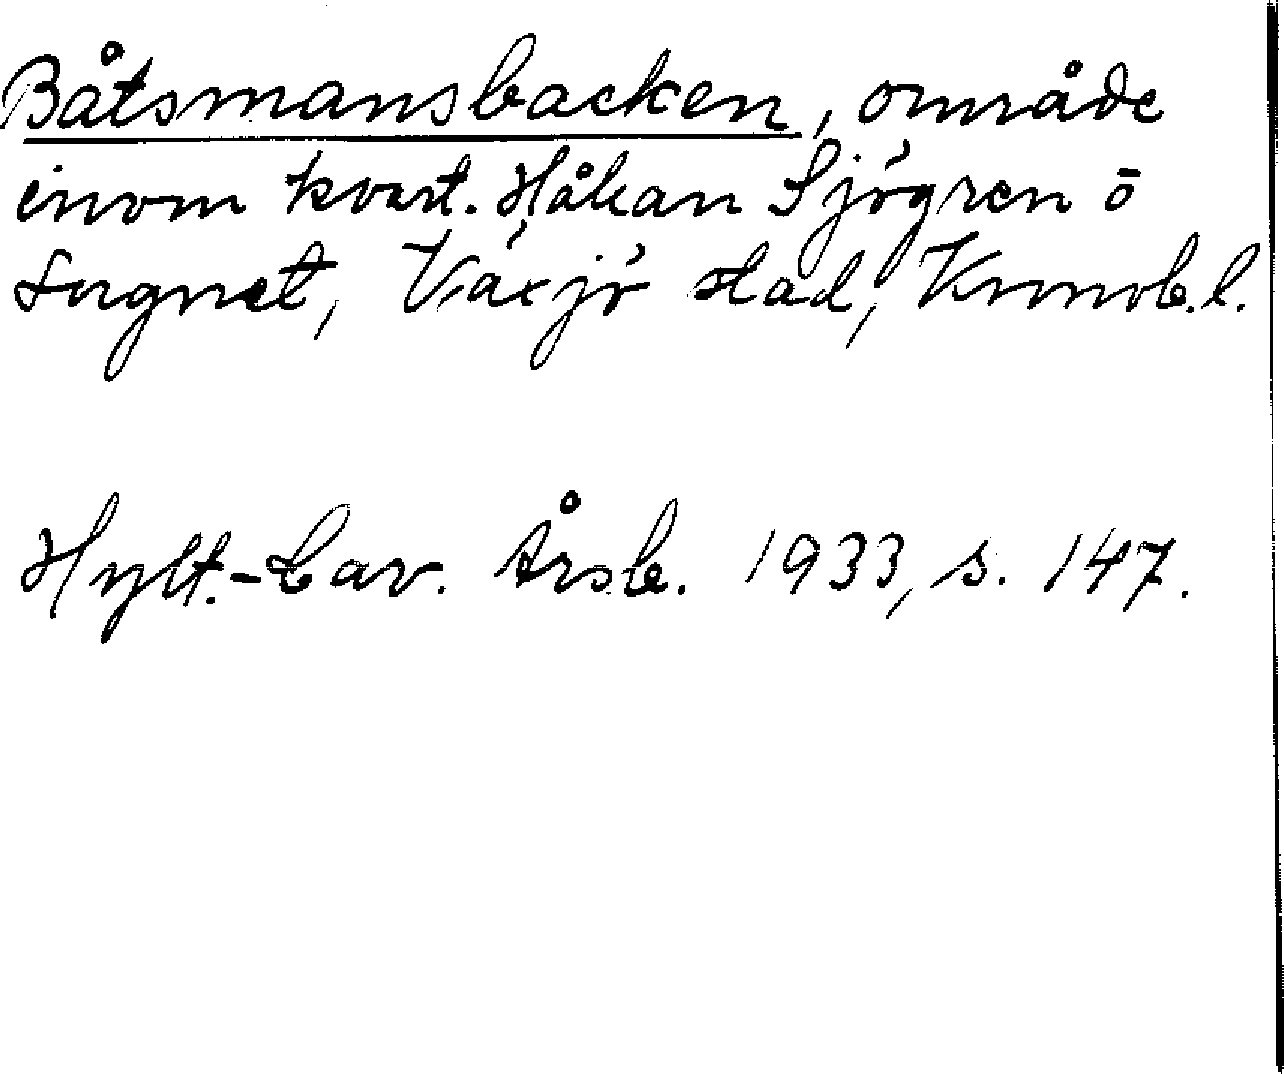 Båtsmansbacken, område
inom kvart. Håkan Sjögren ö
Lugnet, Växjö stad, Kronob.l.
Hylt.-Cav. Årsb. 1933, s. 147.